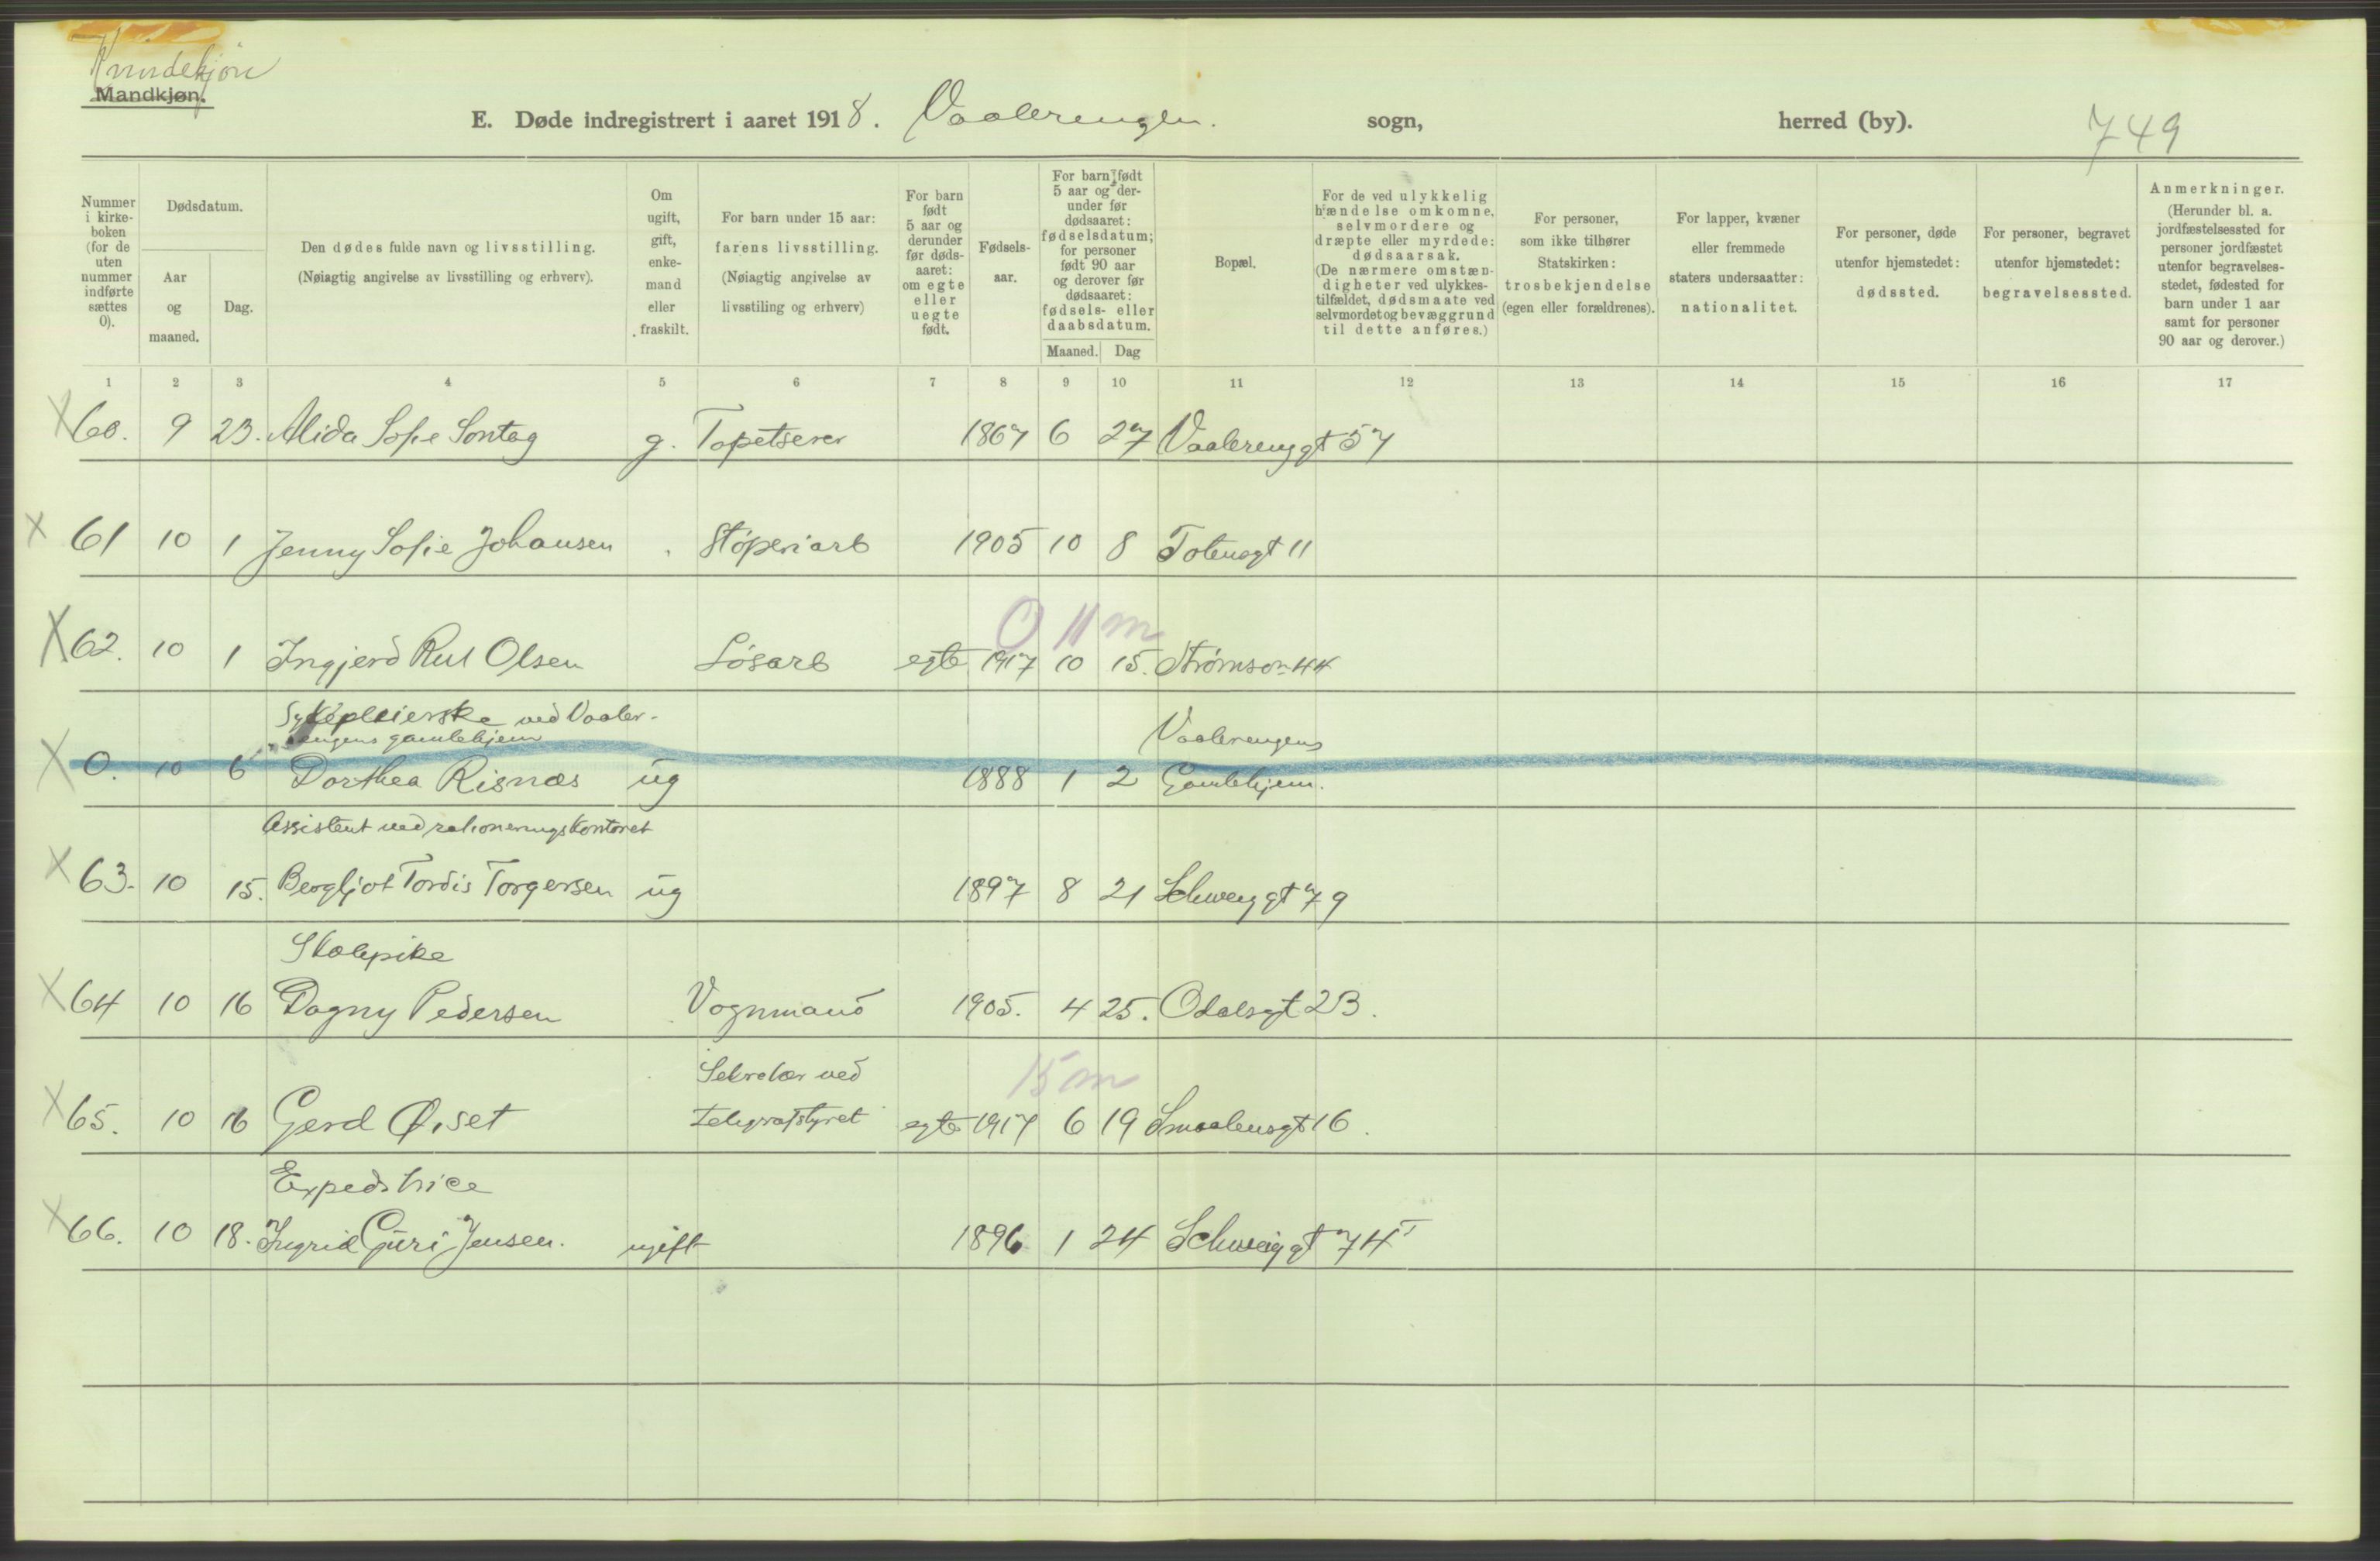 Kvindekjøn
Mandkjøn.
E. Døde indregistrert i aaret 1918. Vaalerengen. sogn, herred (by). 749
Nummer i kirke- boken (for de uten nummer indførte sættes 0).
Dødsdatum.
Aar og maaned.
Dag.
Den dødes fulde navn og livsstilling.
(Nøiagtig angivelse av livsstilling og erhverv).
Om ugift, gift, enke- mand eller fraskilt.
For barn under 15 aar:
farens livsstilling.
(Nøiagtig angivelse av livsstiling og erhverv)
For barn født 5 aar og derunder før døds- aaret: om egte eller uegte født.
Fødsels- aar.
For barn født 5 aar og der- under før dødsaaret: fødselsdatum; for personer født 90 aar og derover før dødsaaret: fødsels- eller daabsdatum.
Maaned. Dag
Bopæl.
For de ved ulykkelig hændelse omkomne, selvmordere og dræpte eller myrdede: dødsaarsak.
(De nærmere omstæn- digheter ved ulykkes- tilfældet, dødsmaate ved selvmordet og bevæggrund til dette anføres.)
For personer, som ikke tilhører Statskirken: trosbekjendelse (egen eller forældrenes).
For lapper, kvæner eller fremmede staters undersaatter: nationalitet.
For personer, døde utenfor hjemstedet: dødssted.
For personer, begravet utenfor hjemstedet: begravelsessted.
Anmerkninger.
(Herunder bl. a. jordfæstelsessted for personer jordfæstet utenfor begravelses- stedet, fødested for barn under 1 aar samt for personer 90 aar og derover.)
1 2 3 4 5 6 7 8 9 10 11 12 13 14 15 16 17
X 60. 9 23. Alida Sofie Sontag g. Tapetserer 1867 6 27 Vaalerenggt 57
X 61 10 1 Jenny Sofie Johansen Støperiarb 1905 10 8 Totensgt 11
0 11 m
X 62. 10 1 Ingjerd Rut Olsen Løsarb egte 1917 10 15. Strømsv 44
Sykepleierske ved Vaaler-
engens gamlehjem Vaalerengens
X 0. 10 6 Dorthea Risnæs ug 1888 1 2 Gamlehjem.
Assistent ved rationeringskontoret
X 63. 10 15. Bergljot Tordis Torgersen ug 1897 8 21 Schweiggt 79
Skolepike
X 64 10 16 Dagny Pedersen Vognmand 1905. 4 25. Odalsgt 23.
Sekretær ved 15 m
X 65. 10 16 Gerd Ørset telegrafstyret egte 1917 6 19 Smaalensgt 16.
Expeditrice
X 66. 10 18. Ingrid Guri Jensen. ugift 1896 1 24 Schweiggt 74 I